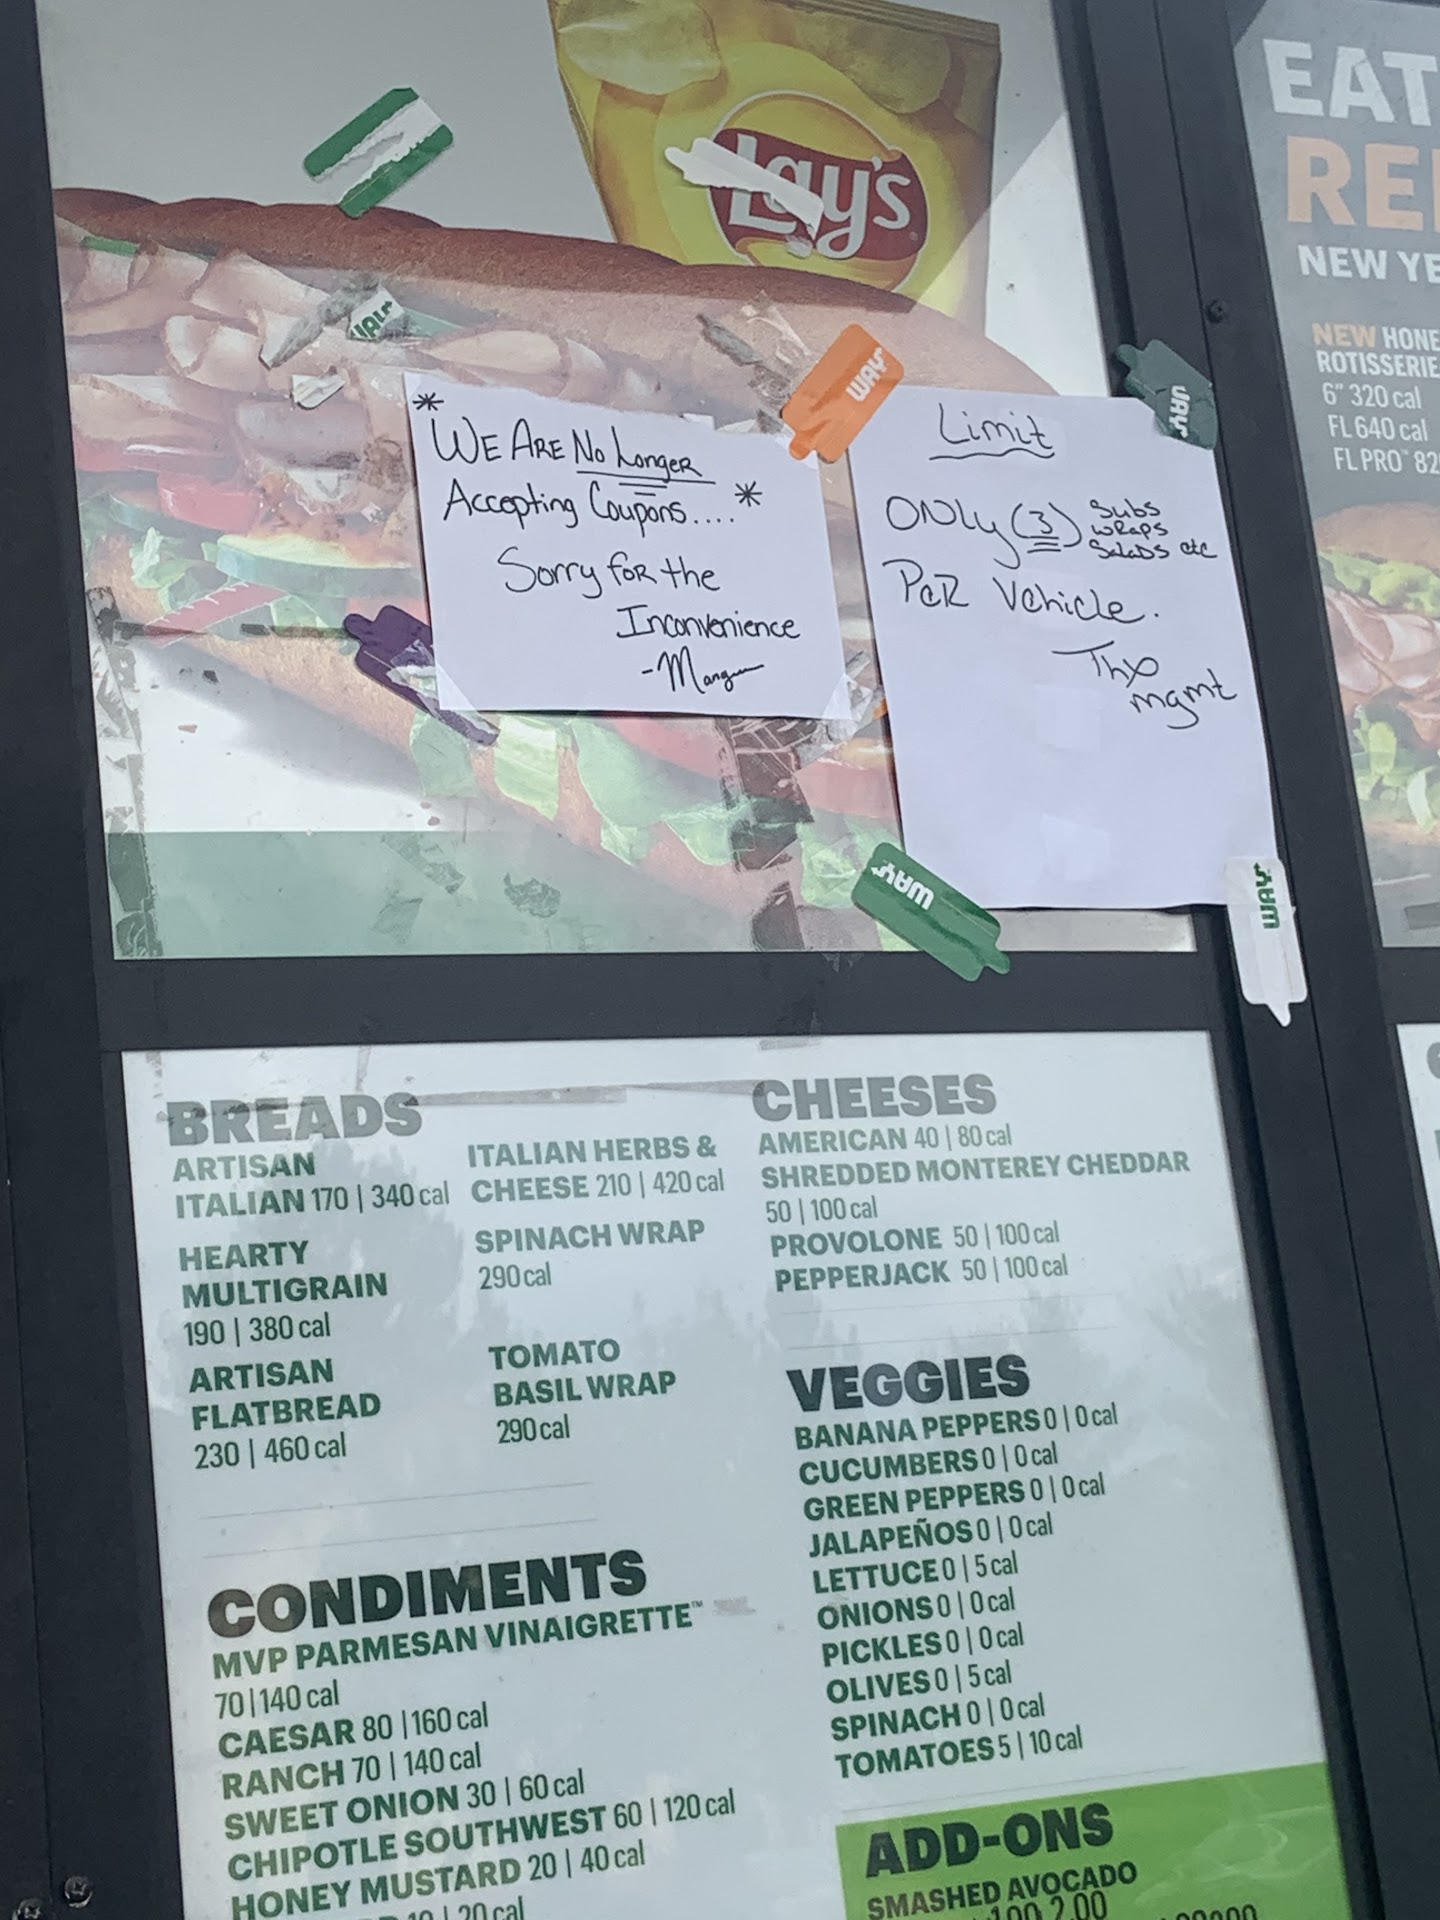 Lay's
WAY
WAY
WAY
* WE ARE No Longer
Accepting Coupons.... *
Sorry for the
Inconvenience
Limit
ONLy (3) Subs
wraps
Salads etc
Per Vehicle.
Thx
mgmt
WAY
WAY
EAT
NEW YE
NEW HONE
ROTISSERIE
6" 320 cal
FL 640 cal
FL PRO™ 82
BREADS
ARTISAN
ITALIAN 170 | 340 cal
HEARTY
MULTIGRAIN
190 | 380 cal
ARTISAN
FLATBREAD
230 | 460 cal
ITALIAN HERBS &
CHEESE 210 | 420 cal
SPINACH WRAP
290 cal
TOMATO
BASIL WRAP
290 cal
CONDIMENTS
MVP PARMESAN VINAIGRETTE™
70 | 140 cal
CAESAR 80 | 160 cal
RANCH 70 | 140 cal
SWEET ONION 30 | 60 cal
CHIPOTLE SOUTHWEST 60 | 120 cal
HONEY MUSTARD 20 | 40 cal
10 | 20 cal
CHEESES
AMERICAN 40 | 80 cal
SHREDDED MONTEREY CHEDDAR
50 | 100 cal
PROVOLONE 50 | 100 cal
PEPPERJACK 50 | 100 cal
VEGGIES
BANANA PEPPERS 0 | 0 cal
CUCUMBERS 0 | 0 cal
GREEN PEPPERS 0 | 0 cal
JALAPEÑOS 0 | 0 cal
LETTUCE 0 | 5 cal
ONIONS 0 | 0 cal
PICKLES 0 | 0 cal
OLIVES 0 | 5 cal
SPINACH 0 | 0 cal
TOMATOES 5 | 10 cal
ADD-ONS
SMASHED AVOCADO
2.00